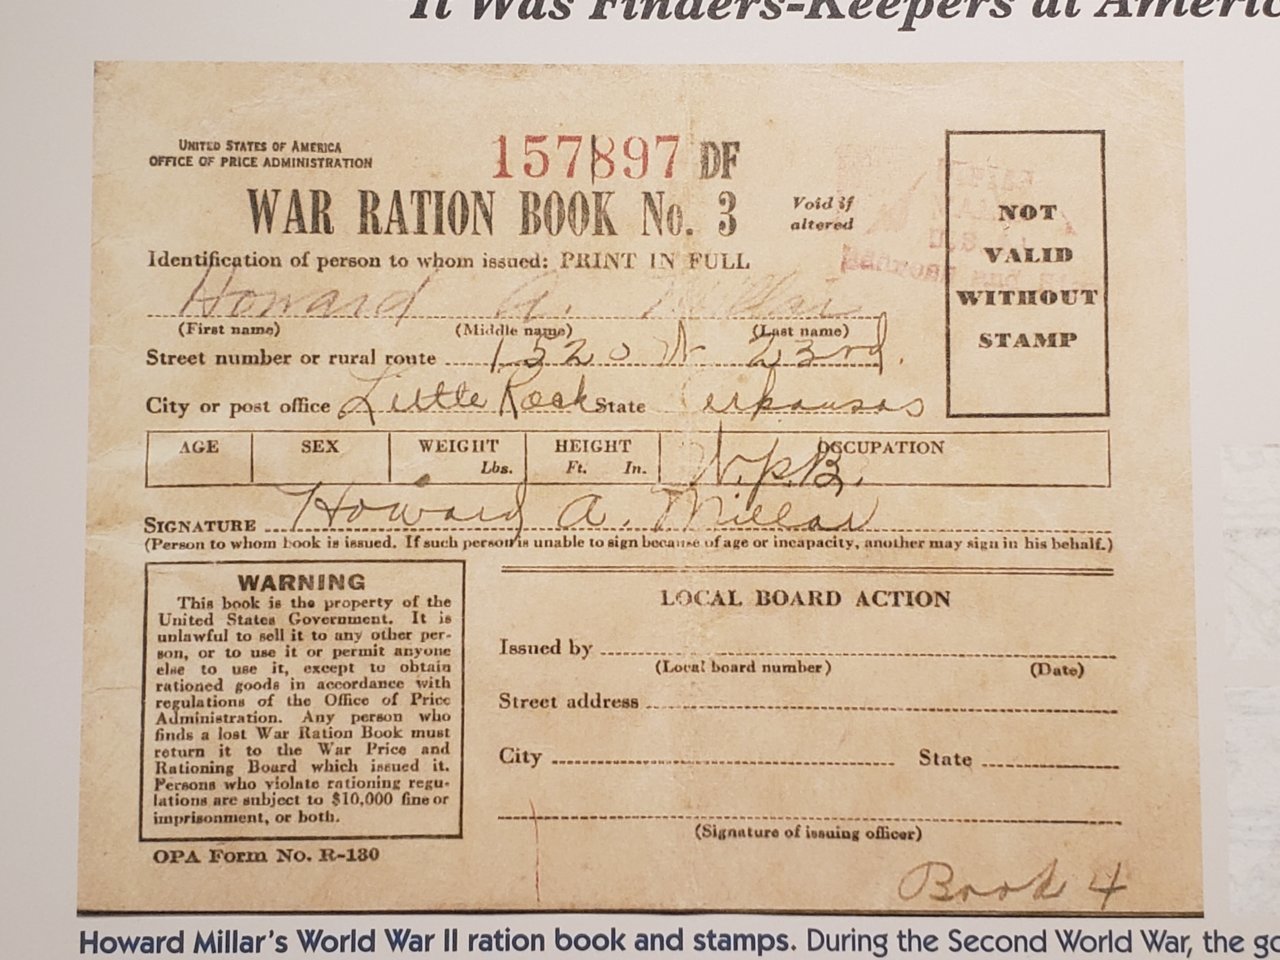 It Was Finders-Keepers at
UNITED STATES OF AMERICA
OFFICE OF PRICE ADMINISTRATION
157897 DF
WAR RATION BOOK No. 3
Void if
altered
NOT
VALID
WITHOUT
STAMP
Identification of person to whom issued: PRINT IN FULL
Howard A. Millar
(First name) (Middle name) (Last name)
Street number or rural route 1520 W 23rd.
City or post office Little Rock State Arkansas
AGE SEX WEIGHT HEIGHT OCCUPATION
Lbs. Ft. In. W.P.B.
SIGNATURE Howard A. Millar
(Person to whom book is issued. If such person is unable to sign because of age or incapacity, another may sign in his behalf.)
WARNING
This book is the property of the
United States Government. It is
unlawful to sell it to any other per-
son, or to use it or permit anyone
else to use it, except to obtain
rationed goods in accordance with
regulations of the Office of Price
Administration. Any person who
finds a lost War Ration Book must
return it to the War Price and
Rationing Board which issued it.
Persons who violate rationing regu-
lations are subject to $10,000 fine or
imprisonment, or both.
OPA Form No. R-130
LOCAL BOARD ACTION
Issued by
(Local board number) (Date)
Street address
City State
(Signature of issuing officer)
Book 4
Howard Millar's World War II ration book and stamps. During the Second World War, the